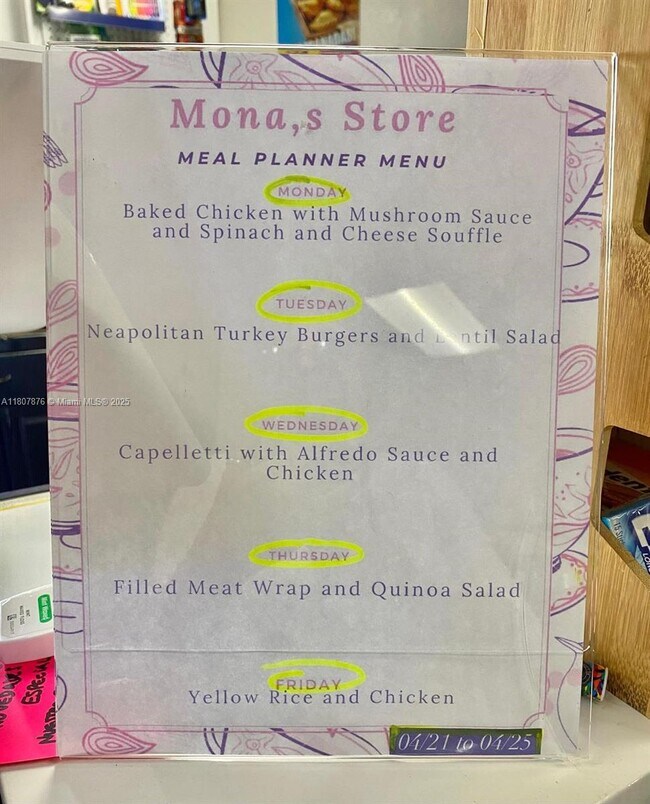 Mona,s Store
MEAL PLANNER MENU
MONDAY
Baked Chicken with Mushroom Sauce
and Spinach and Cheese Souffle
TUESDAY
Neapolitan Turkey Burgers and Lentil Salad
WEDNESDAY
Capelletti with Alfredo Sauce and
Chicken
THURSDAY
Filled Meat Wrap and Quinoa Salad
FRIDAY
Yellow Rice and Chicken
04/21 to 04/25
A11807876 © Miami MLS® 2025